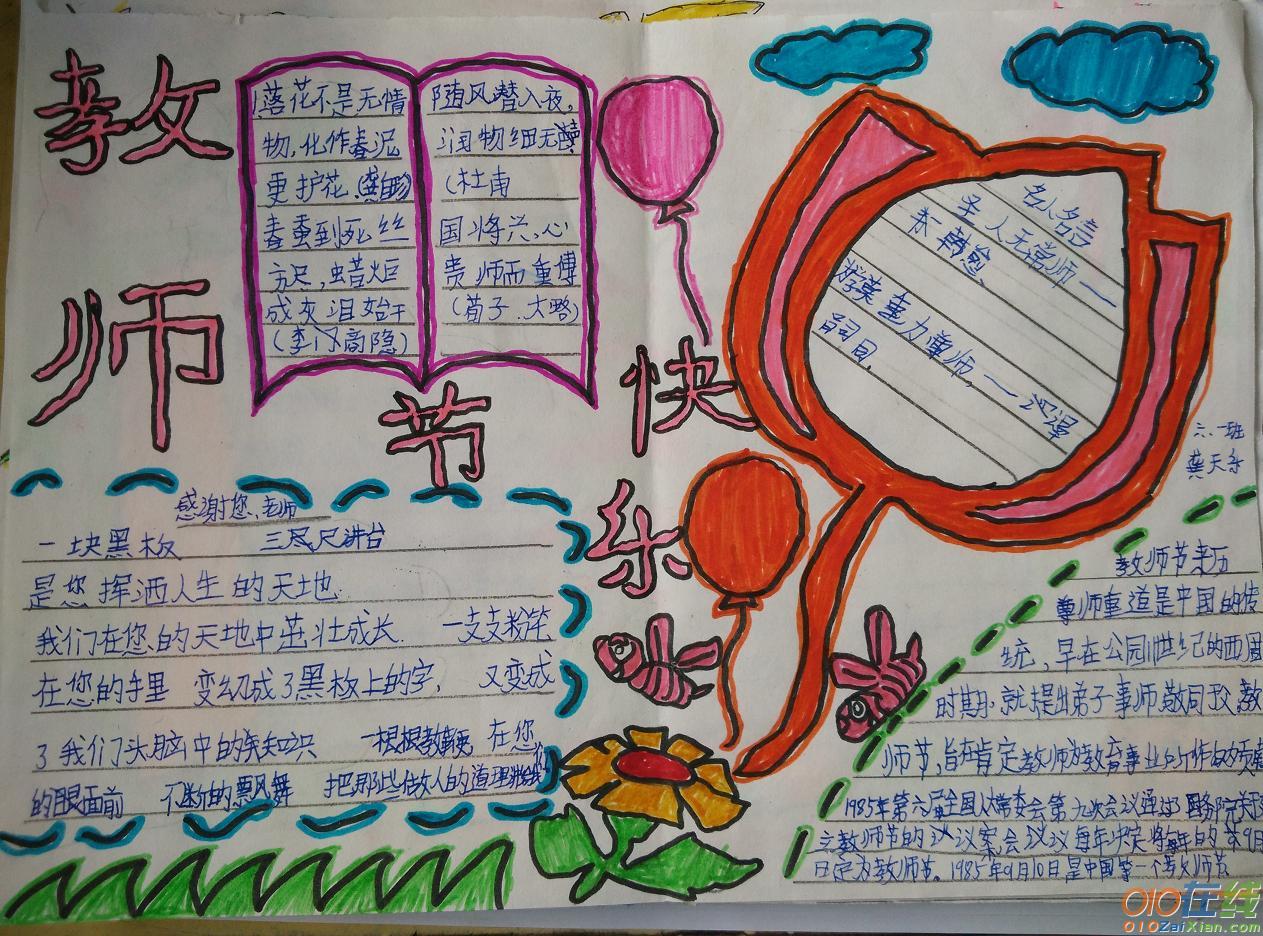 教师节快乐
落花不是无情
物,化作春泥
更护花.(龚自珍)
春蚕到死丝
方尽,蜡炬
成灰泪始干
(李商隐)
随风潜入夜,
润物细无声
(杜甫
国将兴,心
贵师而重傅
(荀子.大略)
名人名言
圣人无常师——
韩愈
莫重力尊师,——
六.一班
龚天乐
感谢您、老师
一块黑板 三尺讲台
是您挥洒人生的天地
我们在您的天地中茁壮成长. 一支支粉笔
在您的手里 变幻成了黑板上的字, 又变成
了我们头脑中的知识 一根根教鞭 在您
的眼面前 不断的飘舞 把那些做人的道理
教师节来历
尊师重道是中国的传
统,早在公园11世纪的西周
时期,就提出弟子事师,敬同
师节,旨在肯定教师为教育事业所作的贡献
1985年第六届全国人大常委会第九次会议通过了国务院关于
立教师节的议案会议决定将每年的9月
日定为教师节。1985年9月10日是中国第一个教师节
010在线
010ZaiXian.com